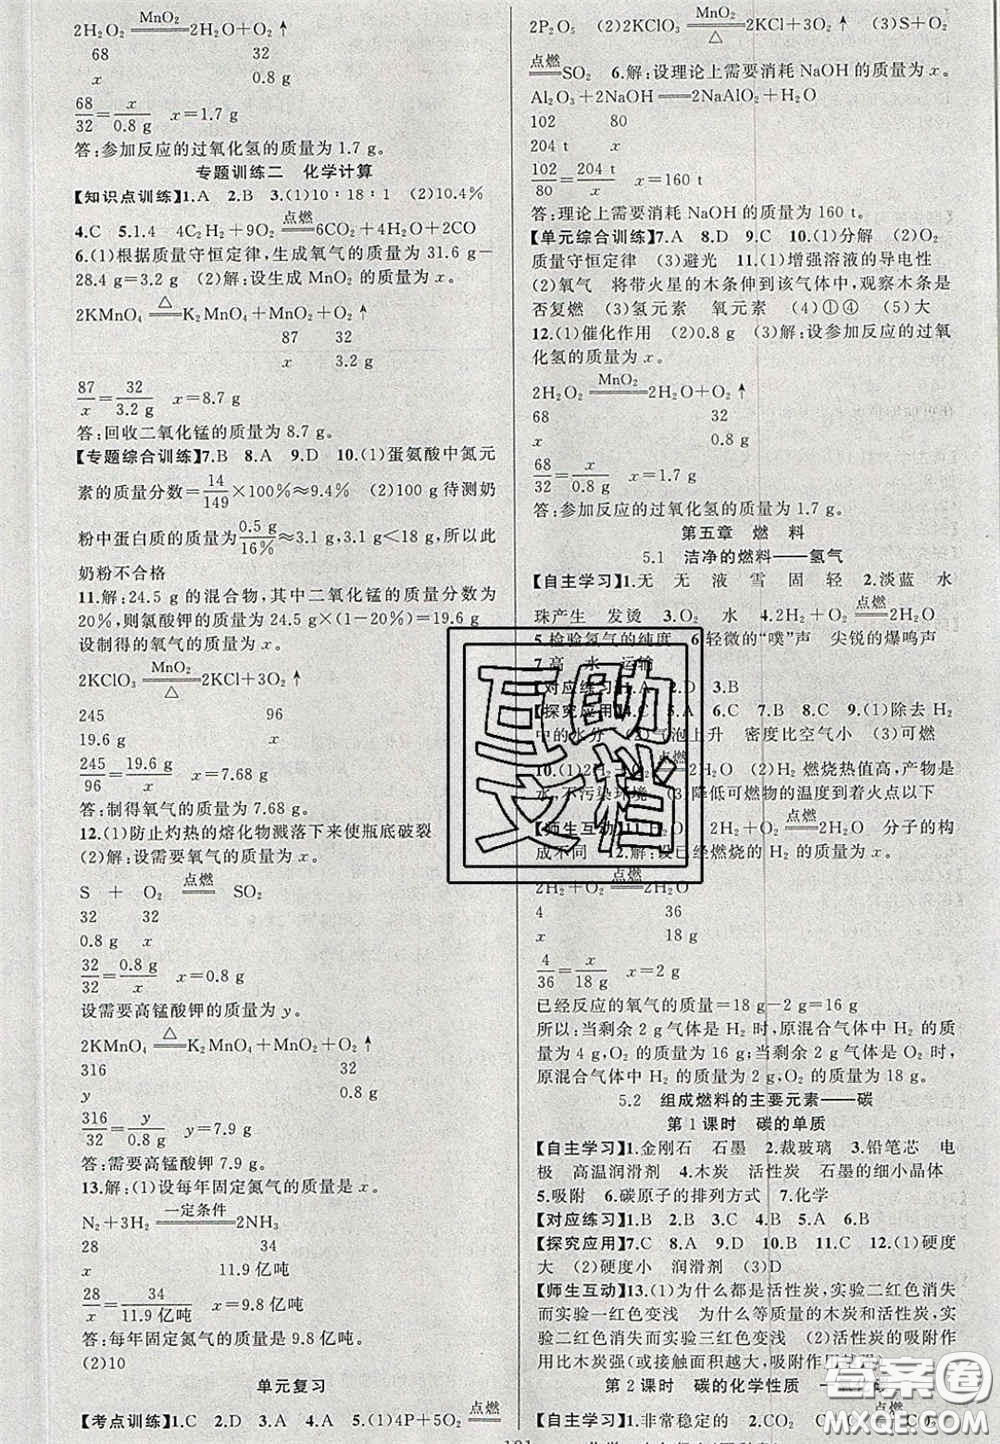 2H₂O₂ =MnO₂= 2H₂O+O₂↑
68 32
x 0.8 g
68/32=x/0.8 g x=1.7 g
答:参加反应的过氧化氢的质量为 1.7 g。
专题训练二 化学计算
【知识点训练】1.A 2.B 3.(1)10∶18∶1 (2)10.4%
4.C 5.1.4 4C₂H₂+9O₂ =点燃= 6CO₂+4H₂O+2CO
6.(1)根据质量守恒定律,生成氧气的质量为 31.6 g-
28.4 g=3.2 g (2)解:设生成 MnO₂ 的质量为 x。
2KMnO₄ =△= K₂MnO₄+MnO₂+O₂↑
87 32
x 3.2 g
87/x=32/3.2 g x=8.7 g
答:回收二氧化锰的质量为 8.7 g。
【专题综合训练】7.B 8.A 9.D 10.(1)蛋氨酸中氮元
素的质量分数=14/149×100%≈9.4% (2)100 g 待测奶
粉中蛋白质的质量为0.5 g/16%≈3.1 g,3.1 g<18 g,所以此
奶粉不合格
11.解:24.5 g 的混合物,其中二氧化锰的质量分数为
20%,则氯酸钾的质量为 24.5 g×(1-20%)=19.6 g
设制得的氧气的质量为 x。
2KClO₃ =MnO₂/△= 2KCl+3O₂↑
245 96
19.6 g x
245/96=19.6 g/x x=7.68 g
答:制得氧气的质量为 7.68 g。
12.(1)防止灼热的熔化物溅落下来使瓶底破裂
(2)解:设需要氧气的质量为 x。
S + O₂ =点燃= SO₂
32 32
0.8 g x
32/32=0.8 g/x x=0.8 g
设需要高锰酸钾的质量为 y。
2KMnO₄ =△= K₂MnO₄+MnO₂+O₂↑
316 32
y 0.8 g
316/32=y/0.8 g y=7.9 g
答:需要高锰酸钾 7.9 g。
13.解:(1)设每年固定氮气的质量是 x。
N₂+3H₂ =一定条件= 2NH₃
28 34
x 11.9 亿吨
28/x=34/11.9 亿吨 x=9.8 亿吨
答:每年固定氮气的质量是 9.8 亿吨。
(2)10
单元复习
【考点训练】1.C 2.D 3.A 4.A 5.(1)4P+5O₂ =点燃=
2P₂O₅ (2)2KClO₃ =MnO₂/△= 2KCl+3O₂↑ (3)S+O₂
=点燃= SO₂ 6.解:设理论上需要消耗 NaOH 的质量为 x。
Al₂O₃+2NaOH══2NaAlO₂+H₂O
102 80
204 t x
102/80=204 t/x x=160 t
答:理论上需要消耗 NaOH 的质量为 160 t。
【单元综合训练】7.A 8.D 9.C 10.(1)分解 (2)O₂
质量守恒定律 (3)避光 11.(1)增强溶液的导电性
(2)氧气 将带火星的木条伸到该气体中,观察木条是
否复燃 (3)氢元素 氧元素 (4)①④ (5)大
12.(1)催化作用 (2)0.8 g (3)解:设参加反应的过氧
化氢的质量为 x。
2H₂O₂ =MnO₂= 2H₂O+O₂↑
68 32
x 0.8 g
68/32=x/0.8 g x=1.7 g
答:参加反应的过氧化氢的质量为 1.7 g。
第五章 燃 料
5.1 洁净的燃料——氢气
【自主学习】1.无 无 液 雪 固 轻 2.淡蓝 水
珠产生 发烫 3.O₂ 水 4.2H₂+O₂ =点燃= 2H₂O
5.检验氢气的纯度 6.轻微的“噗”声 尖锐的爆鸣声
7.高 水 运输
【对应练习】1.A 2.D 3.B
【探究应用】4.C 5.A 6.C 7.B 8.C 9.(1)除去 H₂
中的水分 (2)气泡上升 密度比空气小 (3)可燃
10.(1)2H₂+O₂ =点燃= 2H₂O (2)H₂ 燃烧热值高,产物是
水,不污染环境 (3)降低可燃物的温度到着火点以下
【师生互动】11. H₂O 2H₂+O₂ =点燃= 2H₂O 分子的构
成不同 12.解:设已经燃烧的 H₂ 的质量为 x。
2H₂+O₂ =点燃= 2H₂O
4 36
x 18 g
4/36=x/18 g x=2 g
已经反应的氧气的质量=18 g-2 g=16 g
所以:当剩余 2 g 气体是 H₂ 时,原混合气体中 H₂ 的质
量为 4 g,O₂ 的质量为 16 g;当剩余 2 g 气体为 O₂ 时,
原混合气体中 H₂ 的质量为 2 g,O₂ 的质量为 18 g。
5.2 组成燃料的主要元素——碳
第 1 课时 碳的单质
【自主学习】1.金刚石 石墨 2.裁玻璃 3.铅笔芯 电
极 高温润滑剂 4.木炭 活性炭 石墨的细小晶体
5.吸附 6.碳原子的排列方式 7.化学
【对应练习】1.B 2.B 3.A 4.C 5.A 6.B
【探究应用】7.C 8.A 9.D 10.B 11.C 12.(1)硬度
大 (2)硬度小 润滑剂 (3)D
【师生互动】13.(1)为什么都是活性炭,实验二红色消失
而实验一红色变浅 为什么等质量的木炭和活性炭,实
验二红色消失而实验三红色变浅 (2)活性炭的吸附作
用比木炭强(或接触面积越大,吸附作用越强)
第 2 课时 碳的化学性质
【自主学习】1.非常稳定的 2.CO₂
互助文档
答案圈